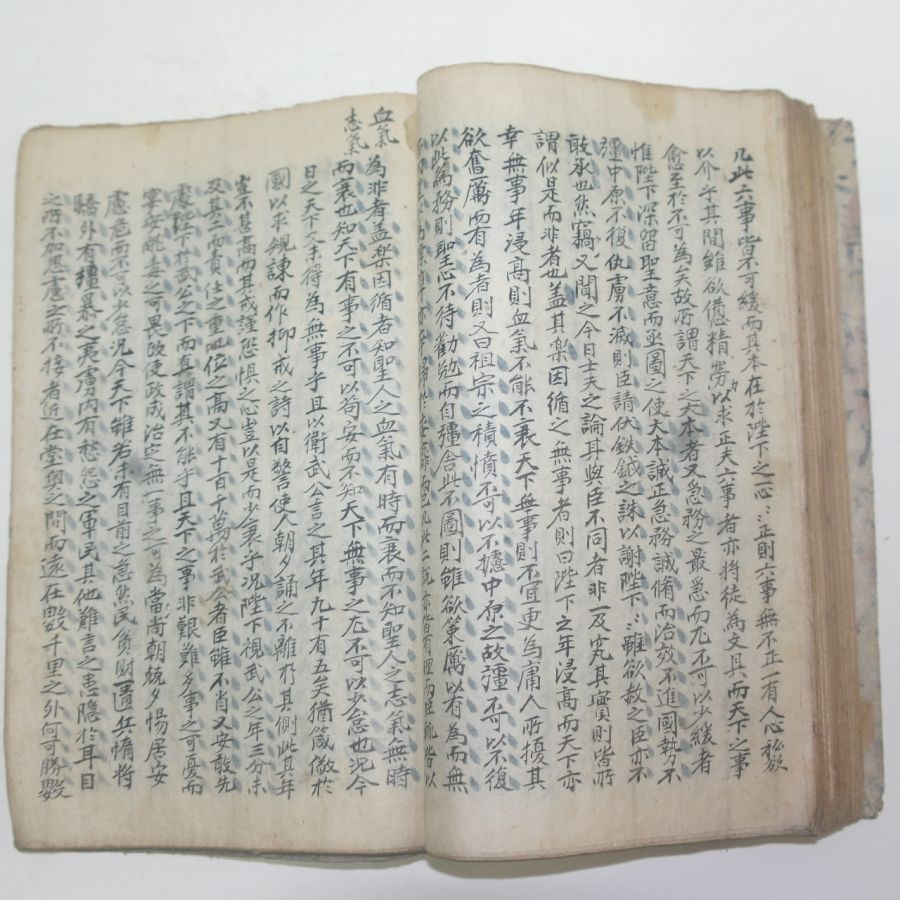 凡此六事皆不可緩而其本在於陛下之一心〻正則六事無不正一有人心私欲
以介乎其間雖欲憊精勞力以求正夫六事者亦將徒為文具而天下之事
愈至於不可為矣故所謂天下之大本者又急務之最急而尤不可以少緩者
惟陛下深留聖意而亟圖之使大本誠正急務誠脩而治效不進國勢不
彊中原不復仇虜不滅則臣請伏鈇鉞之誅以謝陛下〻〻雖欲赦之臣亦不
敢承也然竊又聞之今日士夫之論其與臣不同者非一及究其實則皆所
謂似是而非者也盖其樂因循之無事者則曰陛下之年浸高而天下亦
幸無事年浸高則血氣不能不衰天下無事則不宜更為庸人所擾其
欲奮厲而有為者則又曰祖宗之積憤不可以不攄中原之故彊不可以不復
以此為務則聖心不待勸勉而自彊舍此不圖則雖欲策厲以有為而無
血氣
志氣
為非者盖樂因循者知聖人之血氣有時而衰而不知聖人之志氣無時
而衰也知天下有事之不可以苟安而不知天下無事之尤不可以少怠也況今
日之天下又未得為無事乎且以衛武公言之其年九十有五矣猶箴儆於
國以求規諫而作抑戒之詩以自警使人朝夕誦之不離於其側此其年
豈不甚高而其戒謹恐惧之心豈以是而少衰乎況陛下視武公之年三分未
及其二而責任之重地位之高又有十百千萬於武公者臣雖不肖又安敢先
處陛下於武公之下而直謂其不能乎且天下之事非艱難多事之可憂而
宴安酖毒之可畏政使政成治定無一事之可為當尚朝兢夕惕居安
慮危而不可以少怠況今天下雖若未有目前之急然民貧財匱兵惰將
驕外有彊暴之夷虜內有愁怨之軍民其他難言之患隱於耳目
之所不加思慮之所不接者近在堂奧之間而遠在數千里之外何可勝數